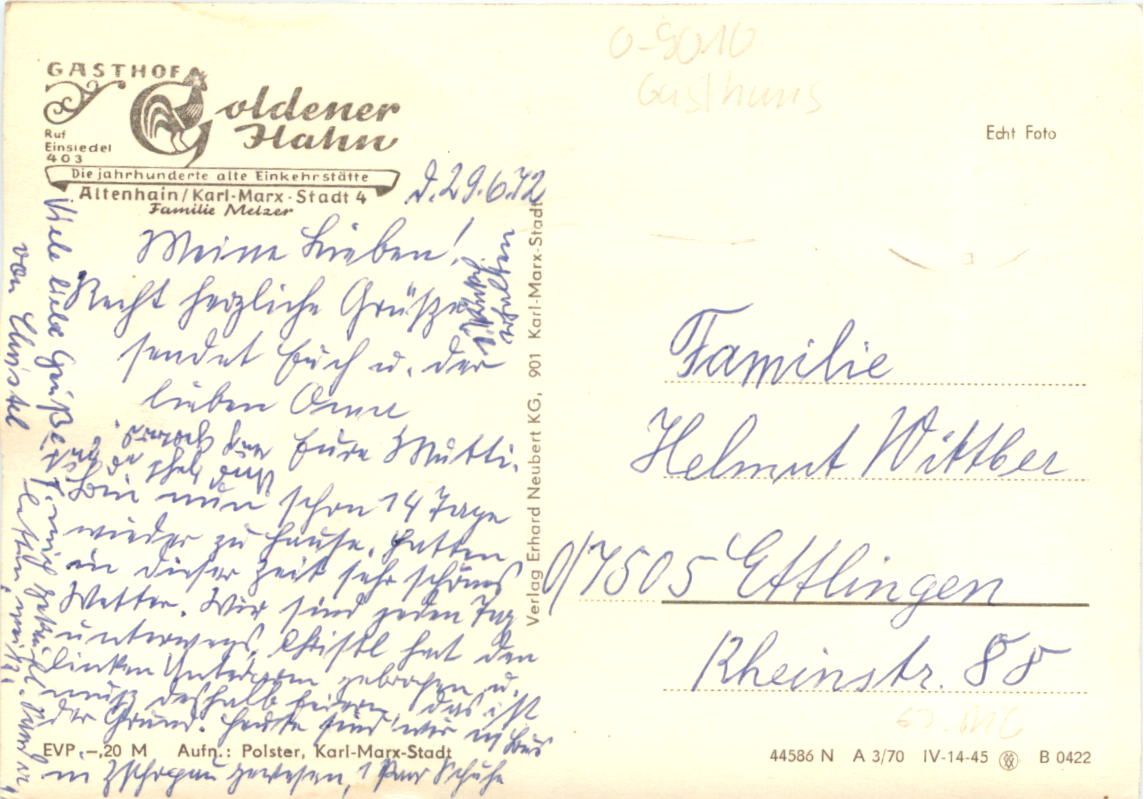 O-9010
Gasthaus
GASTHOF
Goldener
Hahn
Ruf
Einsiedel
403
Die jahrhunderte alte Einkehrstätte
Altenhain/Karl-Marx-Stadt 4
Familie Melzer
Echt Foto
d. 29.6.72
Meine Lieben!
Recht herzliche Grüße
sendet Euch u. der
lieben Oma
Eure Mutti.
Bin nun schon 14 Tage
wieder zu Hause, hatten
in dieser Zeit sehr schönes
Wetter. Wir sind jeden Tag
unterwegs, Christl hat den
linken Unterarm gebrochen u.
muß deshalb feiern, das ist
der Grund. Heute sind wir
in Zschopau gewesen, 1 Paar Schuhe
Viele liebe Grüße
von Christel
Verlag Erhard Neubert KG, 901 Karl-Marx-Stadt
Familie
Helmut Wittber
7505 Ettlingen
Rheinstr. 88
EVP -,20 M Aufn.: Polster, Karl-Marx-Stadt
44586 N A 3/70 IV-14-45 B 0422